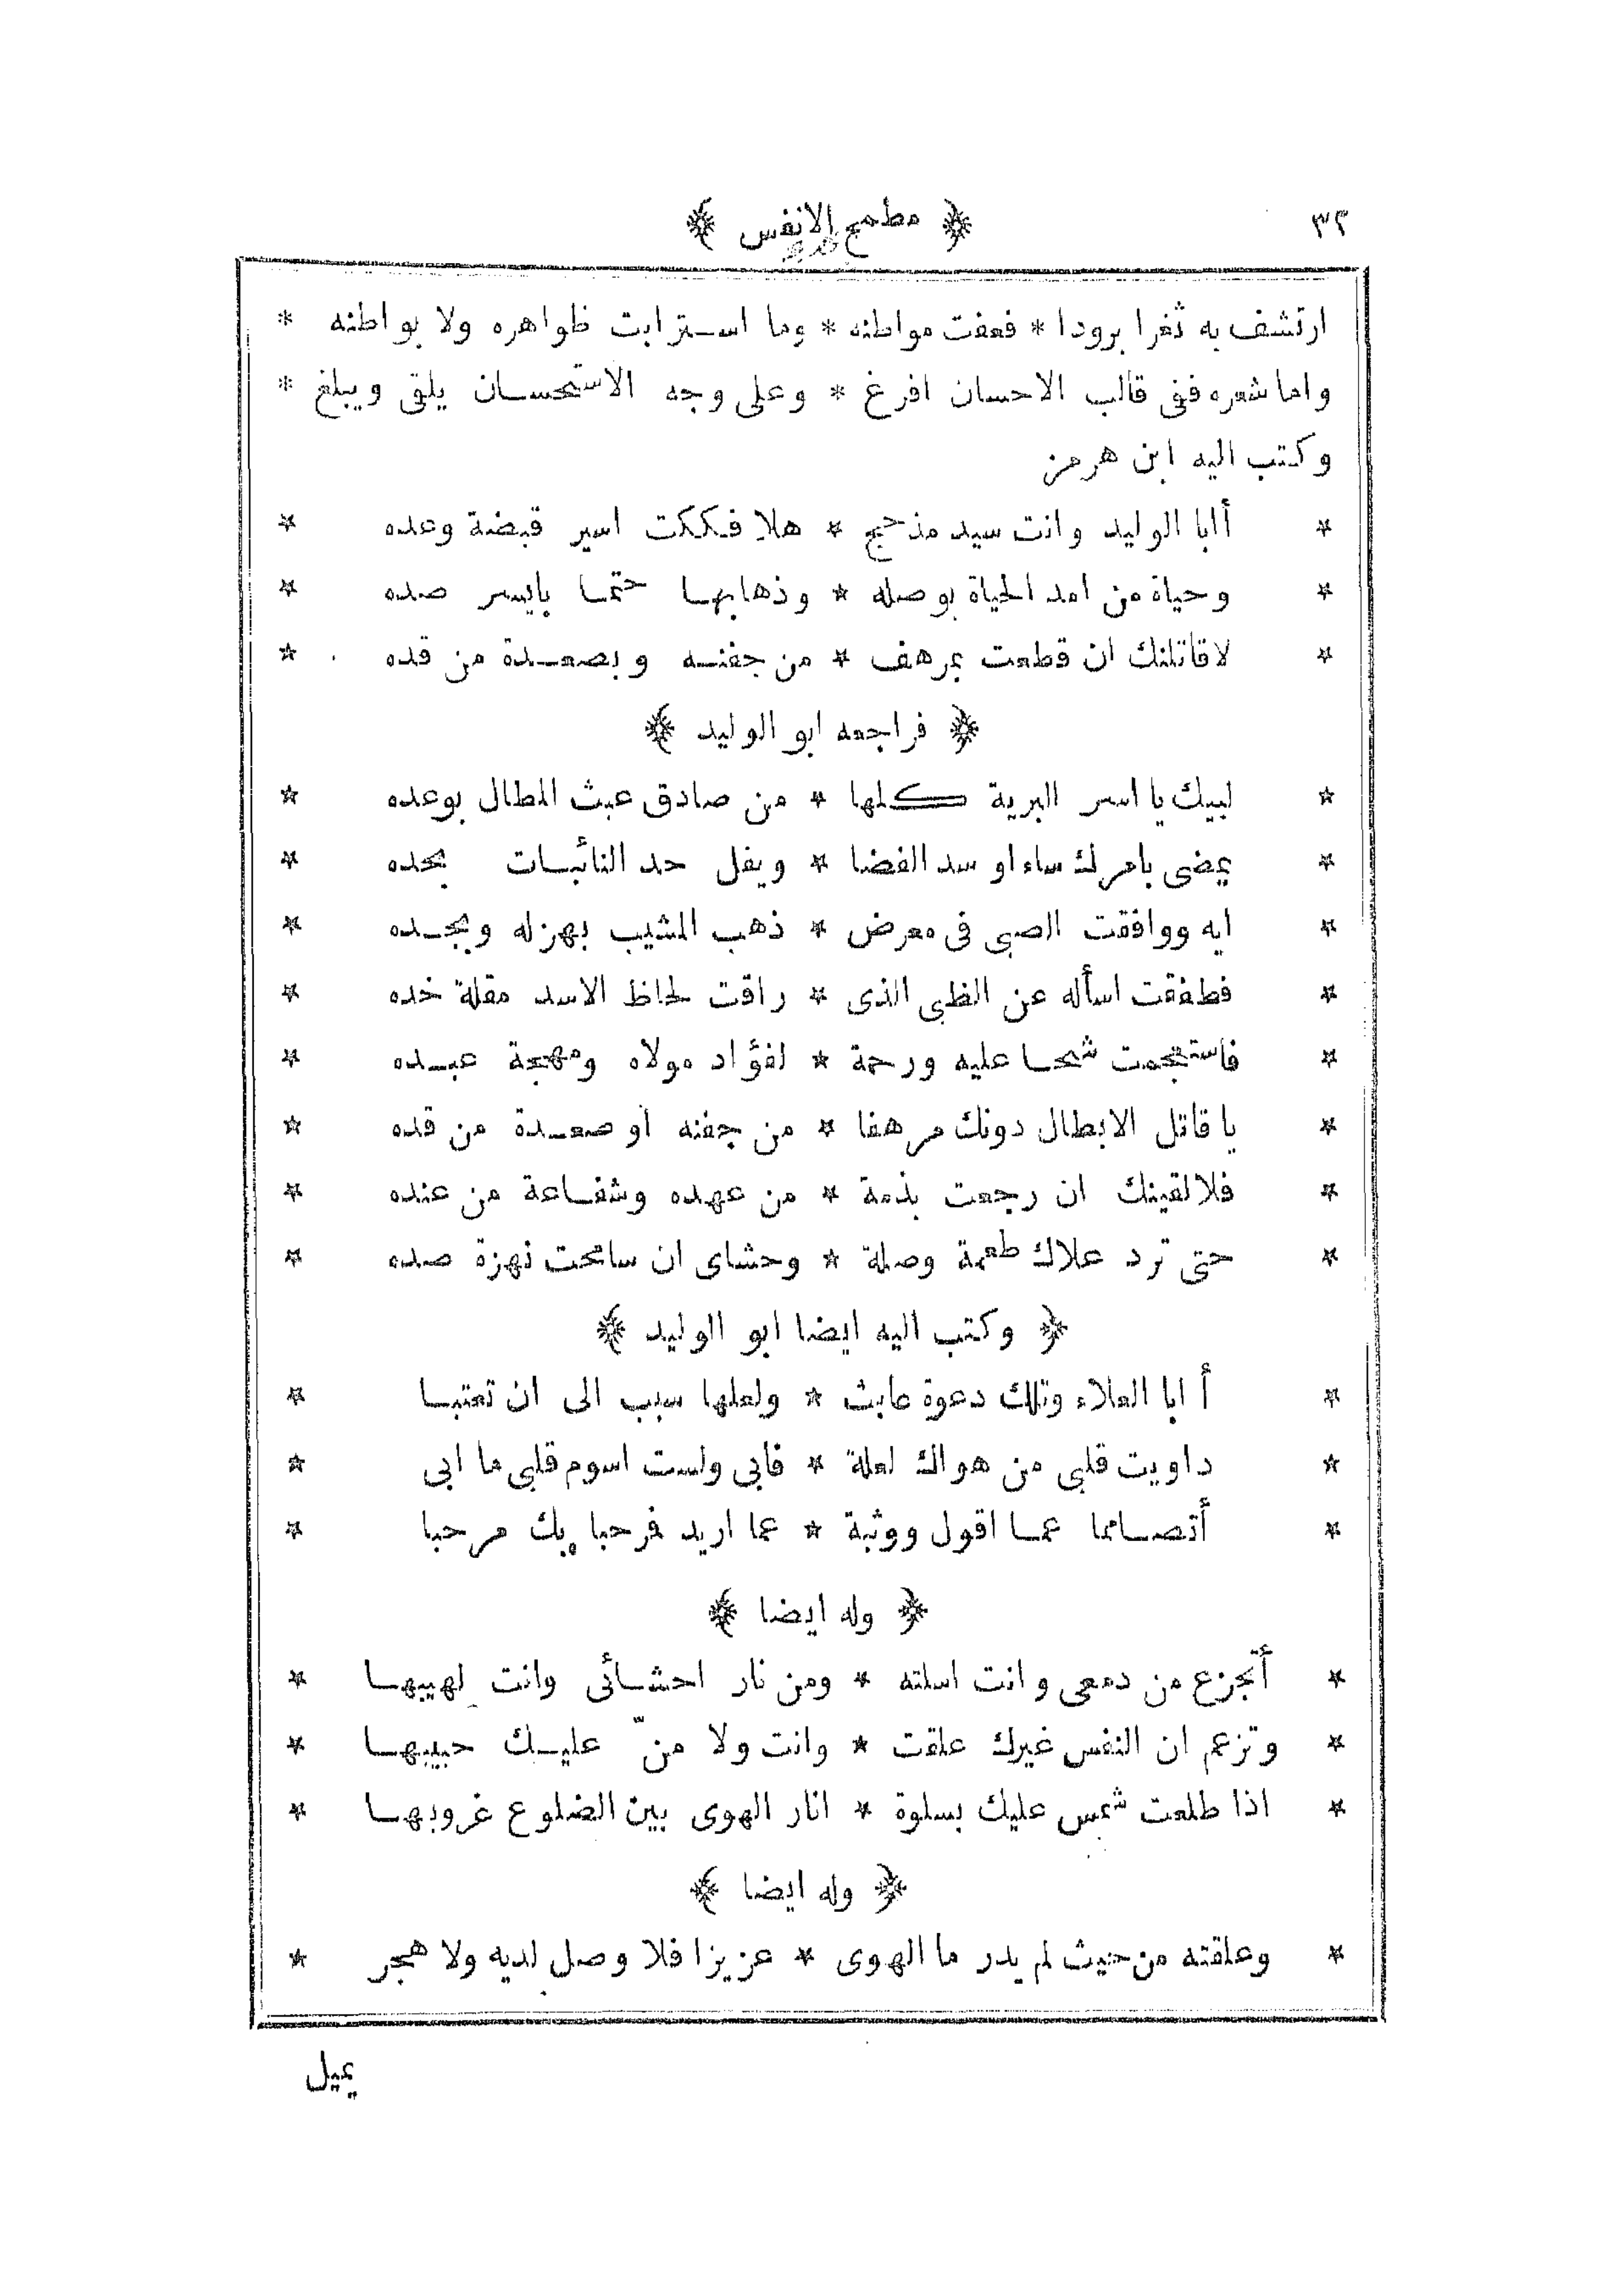 ٣٢ ﴿ مطمح الانفس ﴾
ارتشف به ثغرا برودا * فعفت مواطنه * وما استرابت ظواهره ولا بواطنه *
واما شعره ففى قالب الاحسان افرغ * وعلى وجه الاستحسان يلقى ويبلغ *
وكتب اليه ابن هرمز
* أابا الوليد وانت سيد مذحج * هلا فككت اسير قبضة وعده *
* وحياة من امد الحياة بوصله * وذهابها حتما بايسر صده *
* لاقاتلنك ان قطعت بمرهف * من جفنه وبصعدة من قده *
﴿ فراجعه ابو الوليد ﴾
* لبيك يا اسر البرية كلها * من صادق عبث المطال بوعده *
* يمضى بامرك ساء او سد الفضا * ويفل حد النائبات بحده *
* ايه ووافقت الصبى فى معرض * ذهب المشيب بهزله وبجده *
* فطفقت اسأله عن الظبى الذى * راقت لحاظ الاسد مقلة خده *
* فاستعجمت شحا عليه ورحمة * لفؤاد مولاه ومهجة عبده *
* يا قاتل الابطال دونك مرهفا * من جفنه او صعدة من قده *
* فلالقينك ان رجعت بذمة * من عهده وشفاعة من عنده *
* حتى ترد علاك طعمة وصلة * وحشاى ان سامحت نهزة صده *
﴿ وكتب اليه ايضا ابو الوليد ﴾
* أ ابا العلاء وتلك دعوة عابث * ولعلها سبب الى ان تعتبا *
* داويت قلبى من هواك لعلة * فابى ولست اسوم قلبى ما ابى *
* أتصامما عما اقول ووثبة * عما اريد فمرحبا بك مرحبا *
﴿ وله ايضا ﴾
* أتجزع من دمعى وانت اسلته * ومن نار احشائى وانت لهيبها *
* وتزعم ان النفس غيرك علقت * وانت ولا منّ عليك حبيبها *
* اذا طلعت شمس عليك بسلوة * اثار الهوى بين الضلوع غروبها *
﴿ وله ايضا ﴾
* وعلقته من حيث لم يدر ما الهوى * عزيزا فلا وصل لديه ولا هجر *
يميل